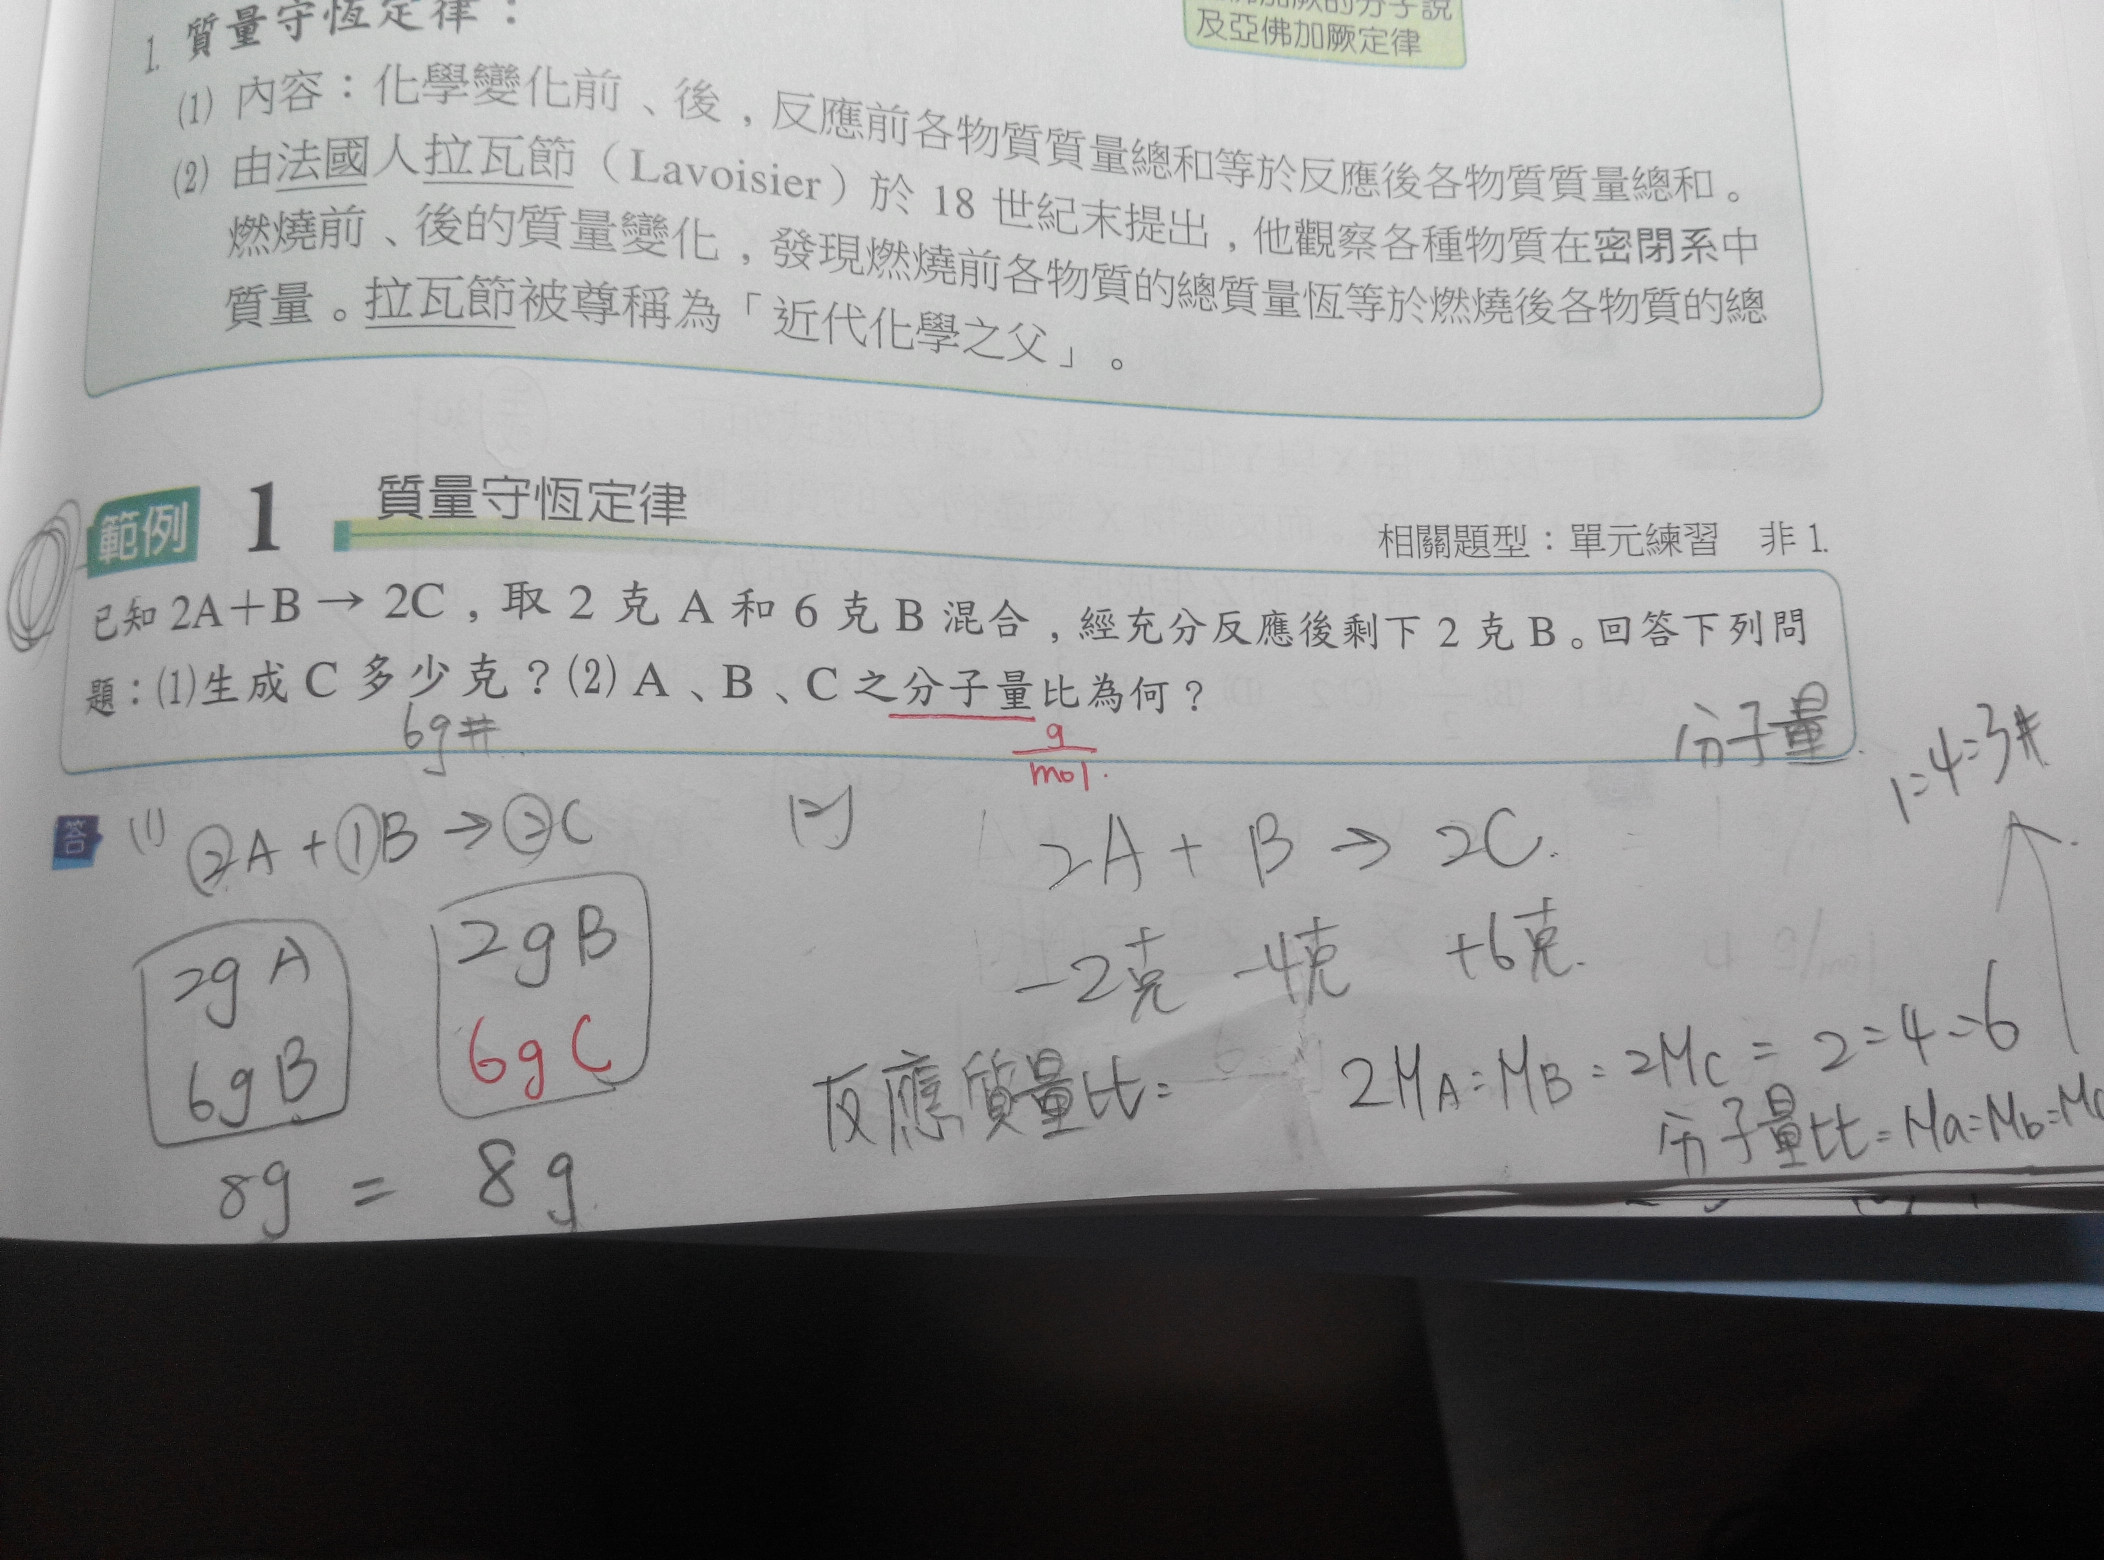 的分子說
及亞佛加厥定律
1. 質量守恆定律：
(1) 內容：化學變化前、後，反應前各物質質量總和等於反應後各物質質量總和。
(2) 由法國人拉瓦節（Lavoisier）於 18 世紀末提出，他觀察各種物質在密閉系中
燃燒前、後的質量變化，發現燃燒前各物質的總質量恆等於燃燒後各物質的總
質量。拉瓦節被尊稱為「近代化學之父」。
範例 1 質量守恆定律
相關題型：單元練習 非 1.
已知 2A＋B → 2C，取 2 克 A 和 6 克 B 混合，經充分反應後剩下 2 克 B。回答下列問
題：(1)生成 C 多少克？(2) A、B、C 之分子量比為何？
6g#
g
mol.
分子量
1:4:3#
答 (1) ②A + ①B → ②C
(2) 2A + B → 2C.
2g A
6g B
2g B
6g C
8g = 8g
-2克 -4克 +6克.
反應質量比: 2MA:MB:2MC = 2:4:6
分子量比:Ma:Mb:Mc